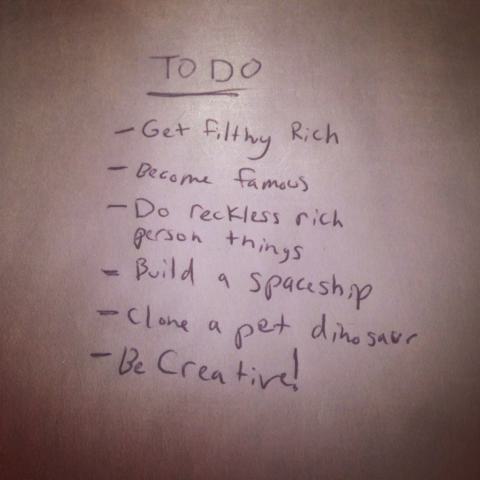 TO DO
- Get Filthy Rich
- Become famous
- Do reckless rich
person things
- Build a spaceship
- Clone a pet dinosaur
- Be Creative!